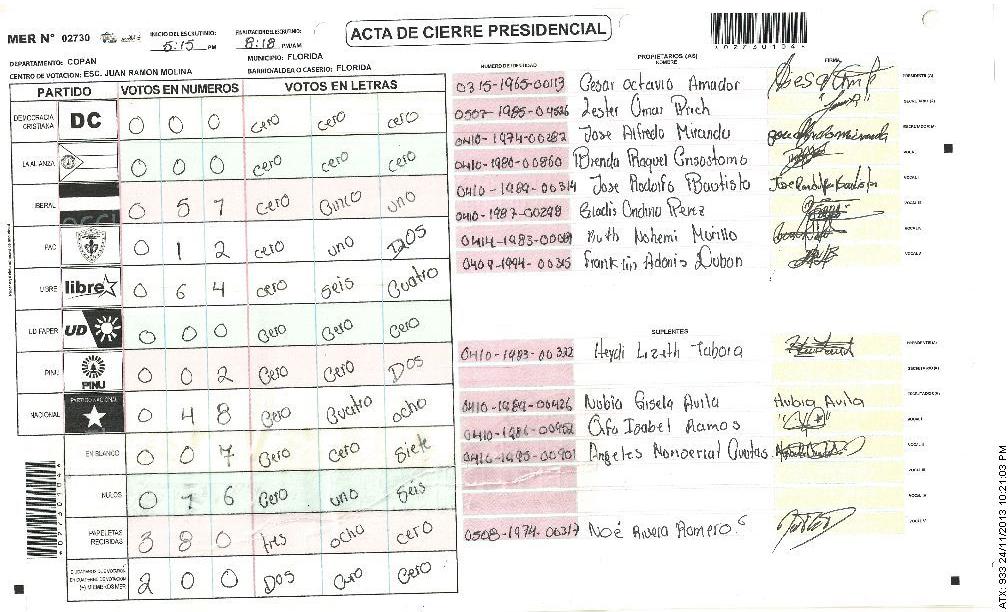 MER N° 02730
INICIO DEL ESCRUTINIO: 5:15 PM
8:18 PM/AM
ACTA DE CIERRE PRESIDENCIAL
DEPARTAMENTO: COPAN
MUNICIPIO: FLORIDA
CENTRO DE VOTACION: ESC. JUAN RAMON MOLINA
BARRIO/ALDEA O CASERIO: FLORIDA
PARTIDO VOTOS EN NUMEROS VOTOS EN LETRAS
DEMOCRACIA CRISTIANA DC 0 0 0 cero cero cero
LA ALIANZA 0 0 0 cero cero cero
0 5 7 cero Cinco uno
PAC 0 1 2 cero uno DOS
LIBRE libre 0 6 4 cero seis Cuatro
UD FAPER UD 0 0 0 Cero Cero Cero
PINU PINU 0 0 2 Cero Cero DOS
NACIONAL 0 4 8 Cero Cuatro ocho
EN BLANCO 0 0 7 Cero cero Siete
NULOS 0 6 Cero uno Seis
PAPELETAS RECIBIDAS 3 8 0 tres ocho cero
2 0 0 DOS Cero Cero
NUMERO DE IDENTIDAD
PROPIETARIOS (AS)
NOMBRE
FIRMA
0315-1965-00113 Cesar Octavio Amador PRESIDENTE (A)
0507-1985-04536 Lester Omar SECRETARIO (A)
0410-1974-00282 Jose Alfredo Miranda ESCRUTADOR (A)
0410-1980-00860 Brenda Raquel Crisostomo VOCAL I
0410-1989-00314 Jose Rodolfo Bautista
0410-1987-00298 Gladis Ondina Perez
Ruth Nohemi Murillo
0409-1994-00315 Franklin Adonis Dubon
SUPLENTES
0410-1983-00322 Heydi Lizeth Tabora PRESIDENTE (A)
SECRETARIO (A)
0410-1989-00426 Nubia Gisela Avila Nubia Avila ESCRUTADOR (A)
Isabel Ramos
Angeles Monserrat
0508-1974-00317 Noé Rivera Romero
ATX: 933 24/11/2013 10:21:03 PM